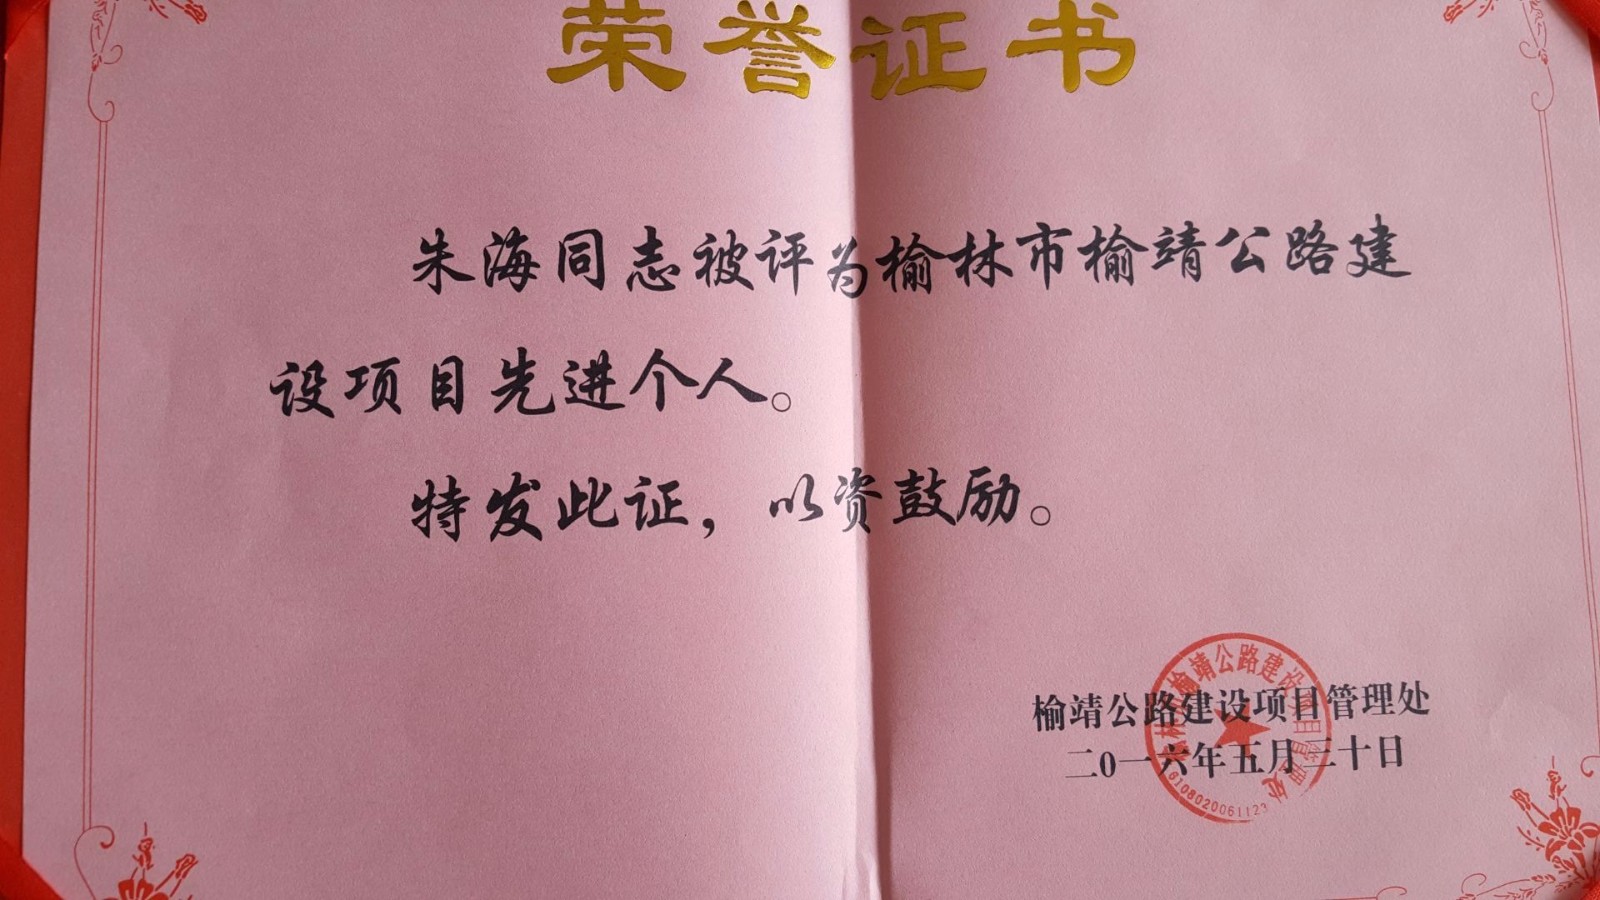 荣誉证书
朱海同志被评为榆林市榆靖公路建
设项目先进个人。
特发此证，以资鼓励。
榆靖公路建设项目管理处
二0一六年五月三十日
榆林榆靖公路建设项目管理处
6108020061123